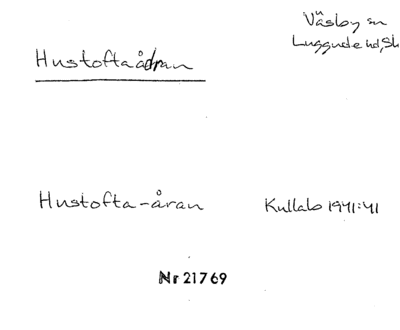 Hustoftaådran
Väsby sn
Luggude hd, Sk
Hustofta-åran
Kullabo 1941:41
Nr 21769